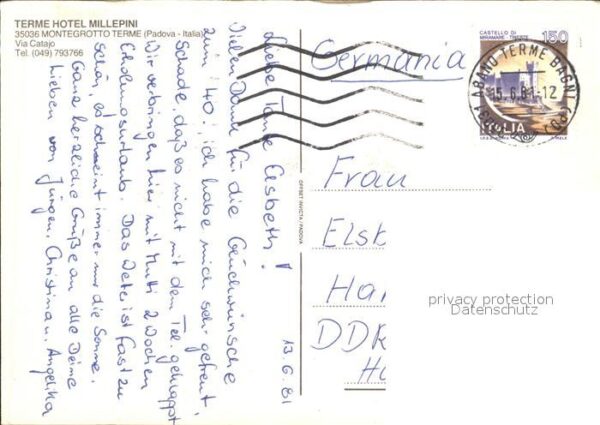 TERME HOTEL MILLEPINI
35036 MONTEGROTTO TERME (Padova - Italia)
Via Catajo
Tel. (049) 793766
13.6.81
Liebe Tante Elsbeth!
Vielen Dank für die Glückwünsche
zum "40.", ich habe mich sehr gefreut,
Schade, daß es nicht mit dem Tel. geklappt
Wir verbringen hier mit Mutti 2 Wochen
Erholungsurlaub. Das Wetter ist fast zu
schön, es scheint immer nur die Sonne.
Ganz herzliche Grüße an alle Deine
Lieben von Jürgen, Christina u. Angelika
OFFSET INVICTA / PADOVA
Germania
CASTELLO DI
MIRAMARE - TRIESTE
150
ITALIA
ABANO TERME BAGNI (PD)
15.6.81-12
Frau
Elsb
Ha
DDR
privacy protection
Datenschutz